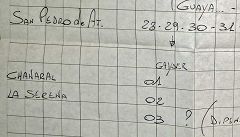 GUAYA.
SAN PEDRO de AT. 28-29-30-31
CHAÑARAL 01
LA SERENA 02
03 ? (DIPEN